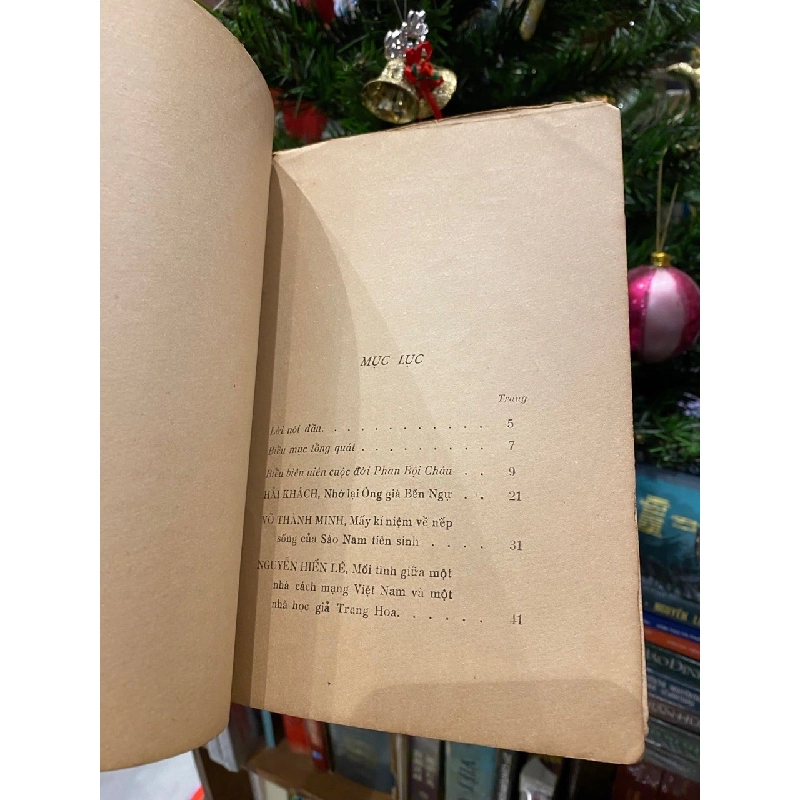 MỤC LỤC
Trang
Lời nói đầu. . . . . . . . . . . . 5
Điều mục tổng quát . . . . . . . . . 7
Biểu biên niên cuộc đời Phan Bội Châu . . 9
HẢI KHÁCH, Nhớ lại Ông già Bến Ngự . . 21
VÕ THÀNH MINH, Mấy kỉ niệm về nếp
sống của Sào Nam tiên sinh . . . . 31
NGUYỄN HIẾN LÊ, Mối tình giữa một
nhà cách mạng Việt Nam và một
nhà học giả Trung Hoa. . . . . . 41
NGUYÊN